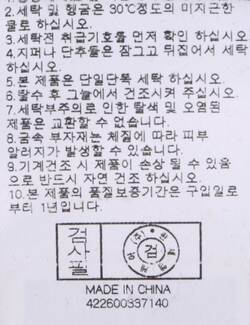 2.세탁 및 헹굼은 30℃정도의 미지근한
물로 하십시오.
3.세탁전 취급기호를 먼저 확인 하십시오
4.지퍼나 단추들은 잠그고 뒤집어서 세탁
하십시오.
5.본 제품은 단일단독 세탁 하십시오.
6.탈수 후 그늘에서 건조시켜 주십시오
7.세탁부주의로 인한 탈색 및 오염된
제품은 교환할 수 없습니다.
8.금속 부자재는 체질에 따라 피부
알러지가 발생할 수 있습니다.
9.기계건조 시 제품이 손상 될 수 있음
으로 반드시 자연 건조 하십시오.
10.본 제품의 품질보증기간은 구입일로
부터 1년입니다.
검사필
(주)
검
MADE IN CHINA
422600337140